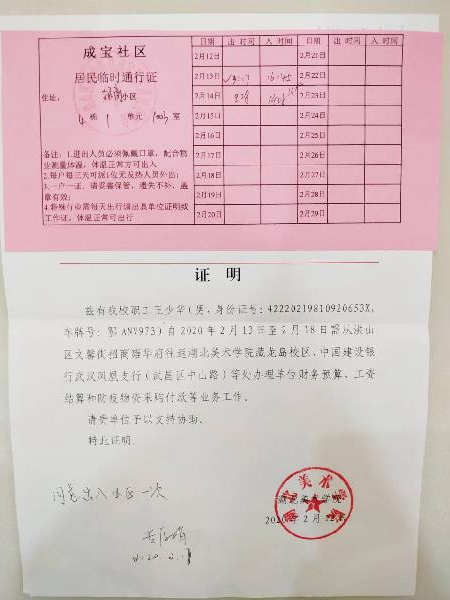 成宝社区
居民临时通行证
住址: 小区
4 栋 1 单元 1003 室
备注：1.进出人员必须佩戴口罩，配合物
业测量体温，体温正常方可出入
2.每户每三天可派1位无发热人员外出;
3.一户一证，请妥善保管，遗失不补，盖
章有效;
4.特殊行业需每天出行请出具单位证明或
工作证，体温正常可出行
日期 出 时间 入 时间 日期 出 时间 入 时间
2月12日 2月21日
2月13日 16:45 2月22日
2月14日 2月23日
2月15日 2月24日
2月16日 2月25日
2月17日 2月26日
2月18日 2月27日
2月19日 2月28日
2月20日 2月29日
证 明
兹有我校职工王少华（男，身份证号：42220219810920653X，
车牌号：鄂 ANV973）自 2020 年 2 月 13 日至 2 月 18 日需从洪山
区文馨街招商雍华府往返湖北美术学院藏龙岛校区、中国建设银
行武汉凤凰支行（武昌区中山路）等处办理单位财务预算、工资
结算和防疫物资采购付款等业务工作。
请贵单位予以支持协助。
特此证明。
湖北美术学院
2020 年 2 月 12 日
同意出入小区一次
2020.2.1